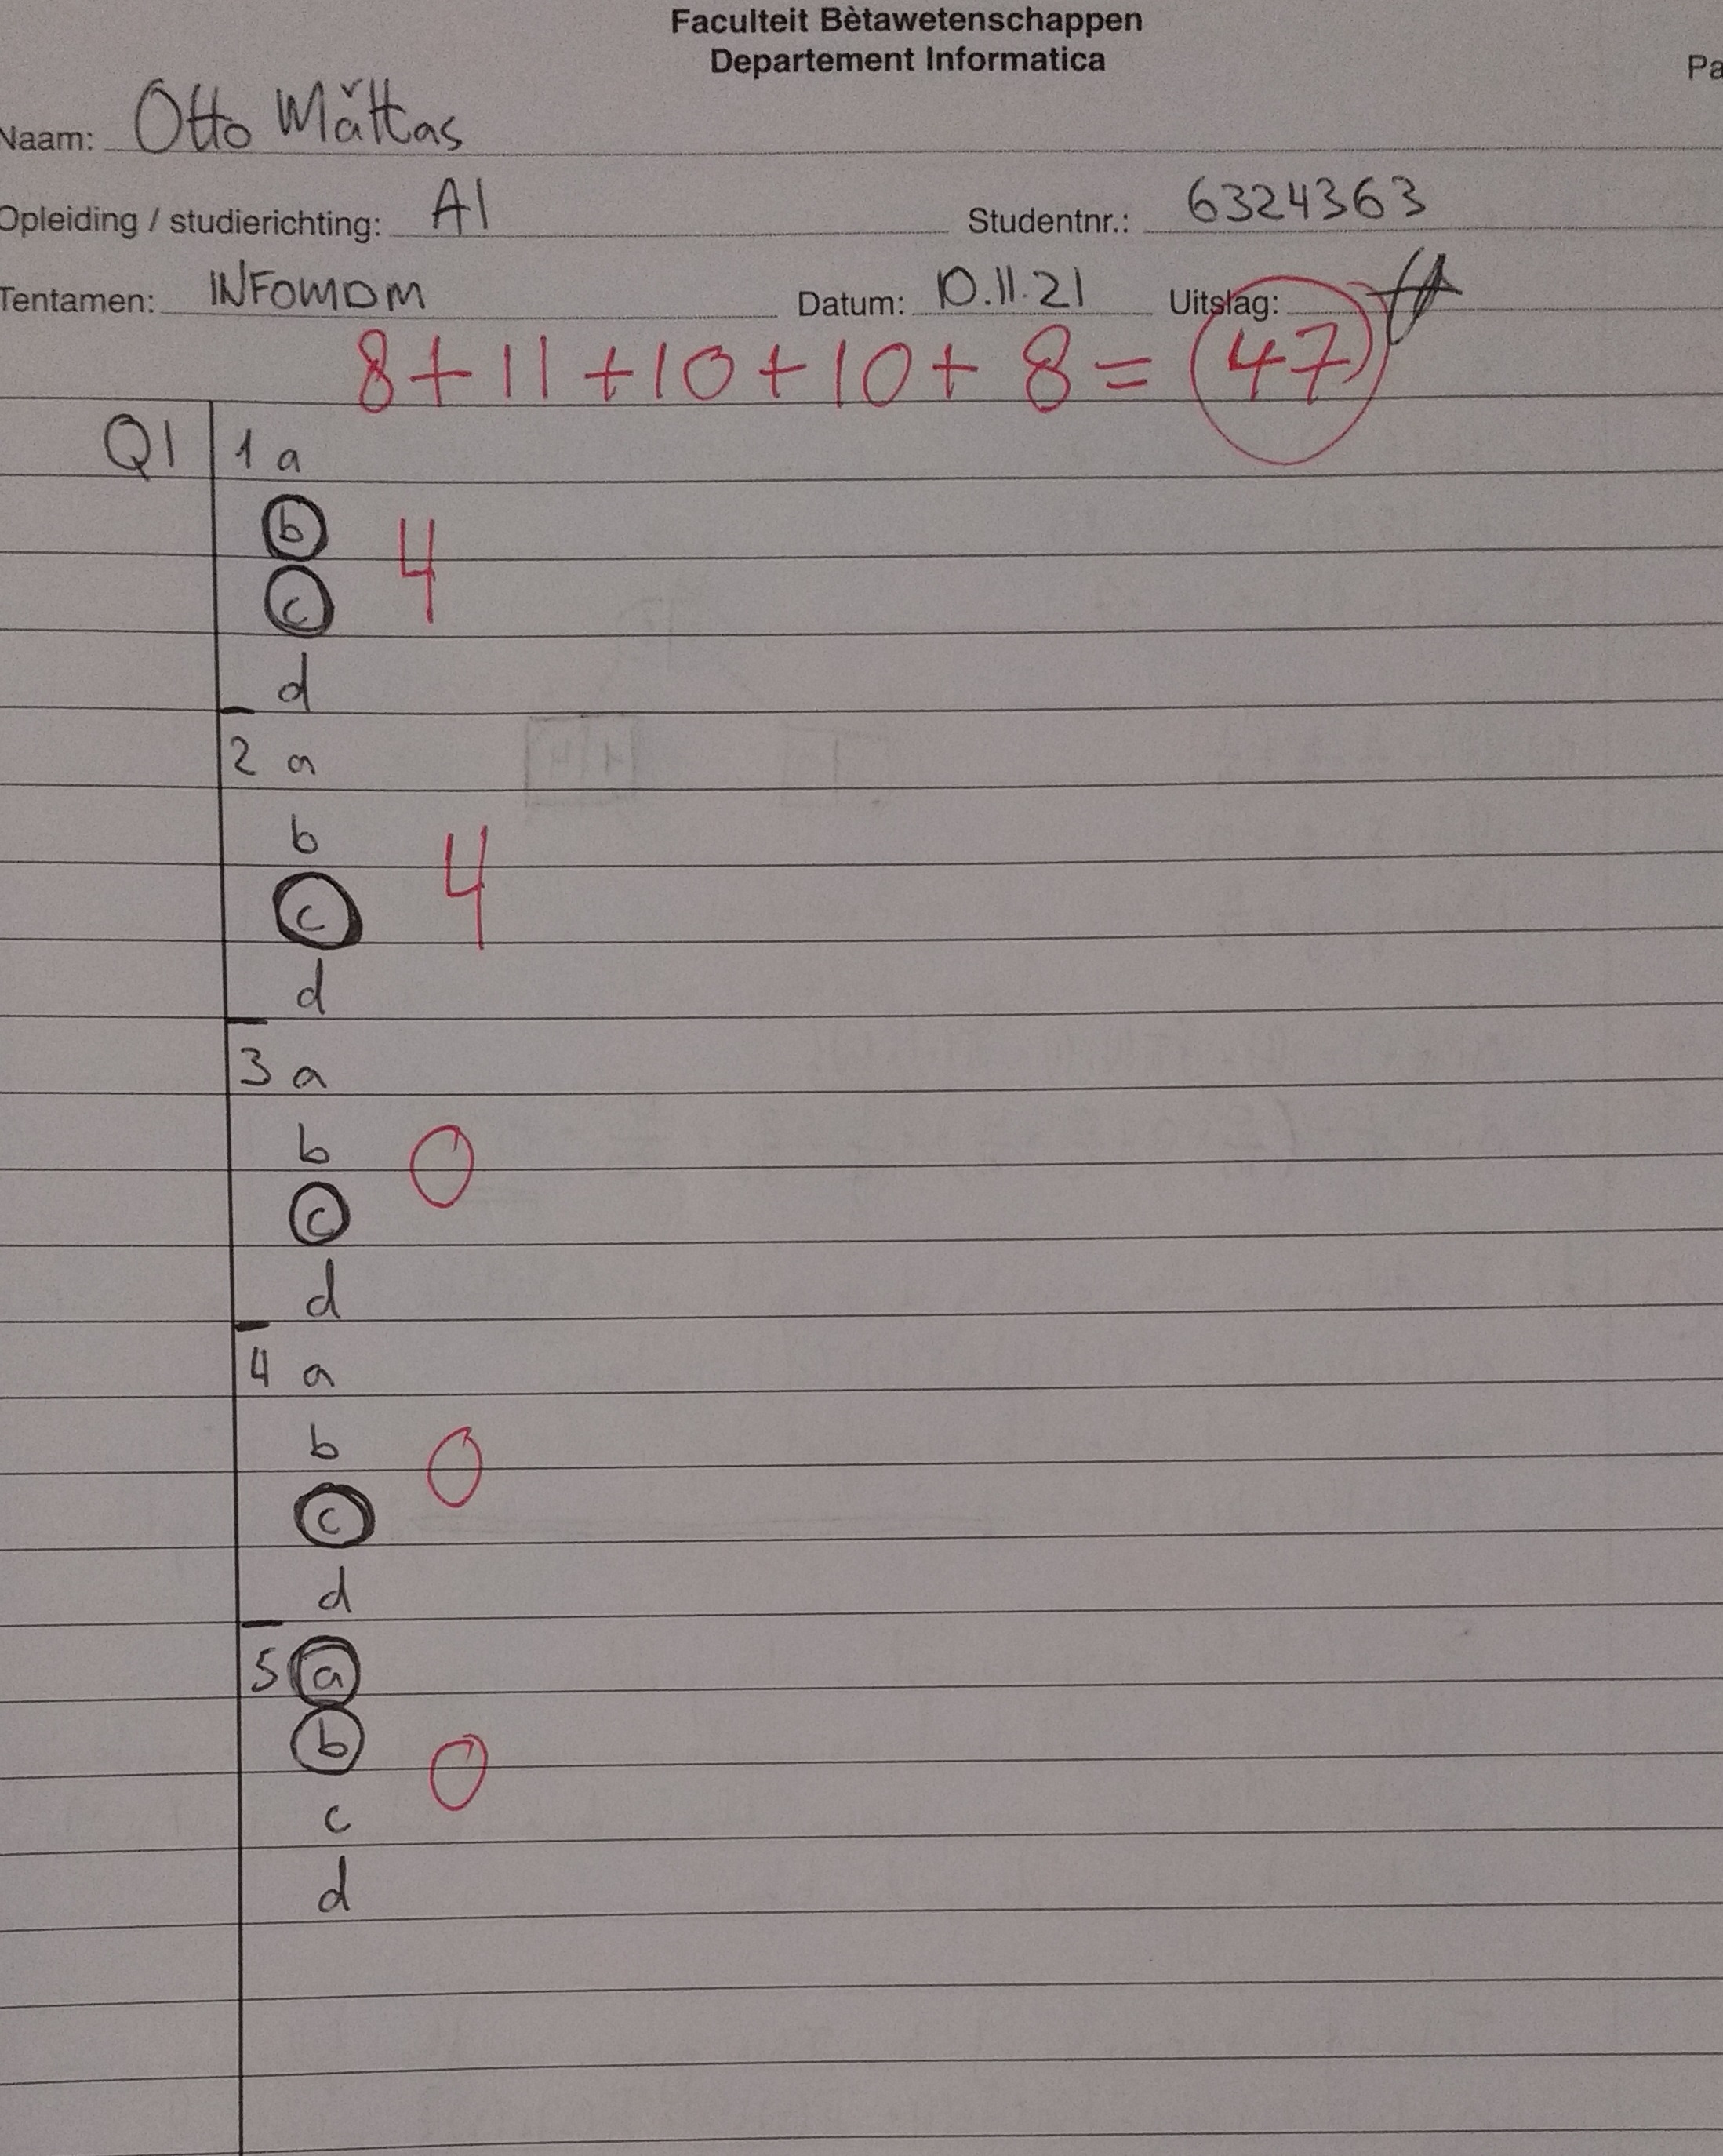 Faculteit Bètawetenschappen
Departement Informatica
Pa
Naam: Otto Mättas
Opleiding / studierichting: AI Studentnr.: 6324363
Tentamen: INFOMDM Datum: 10.11.21 Uitslag:
8+11+10+10+8=47
Q1 1 a
b
c
4
d
2 a
b
4
c
d
3 a
b
0
c
d
4 a
b
0
c
d
5 a
b
0
c
d